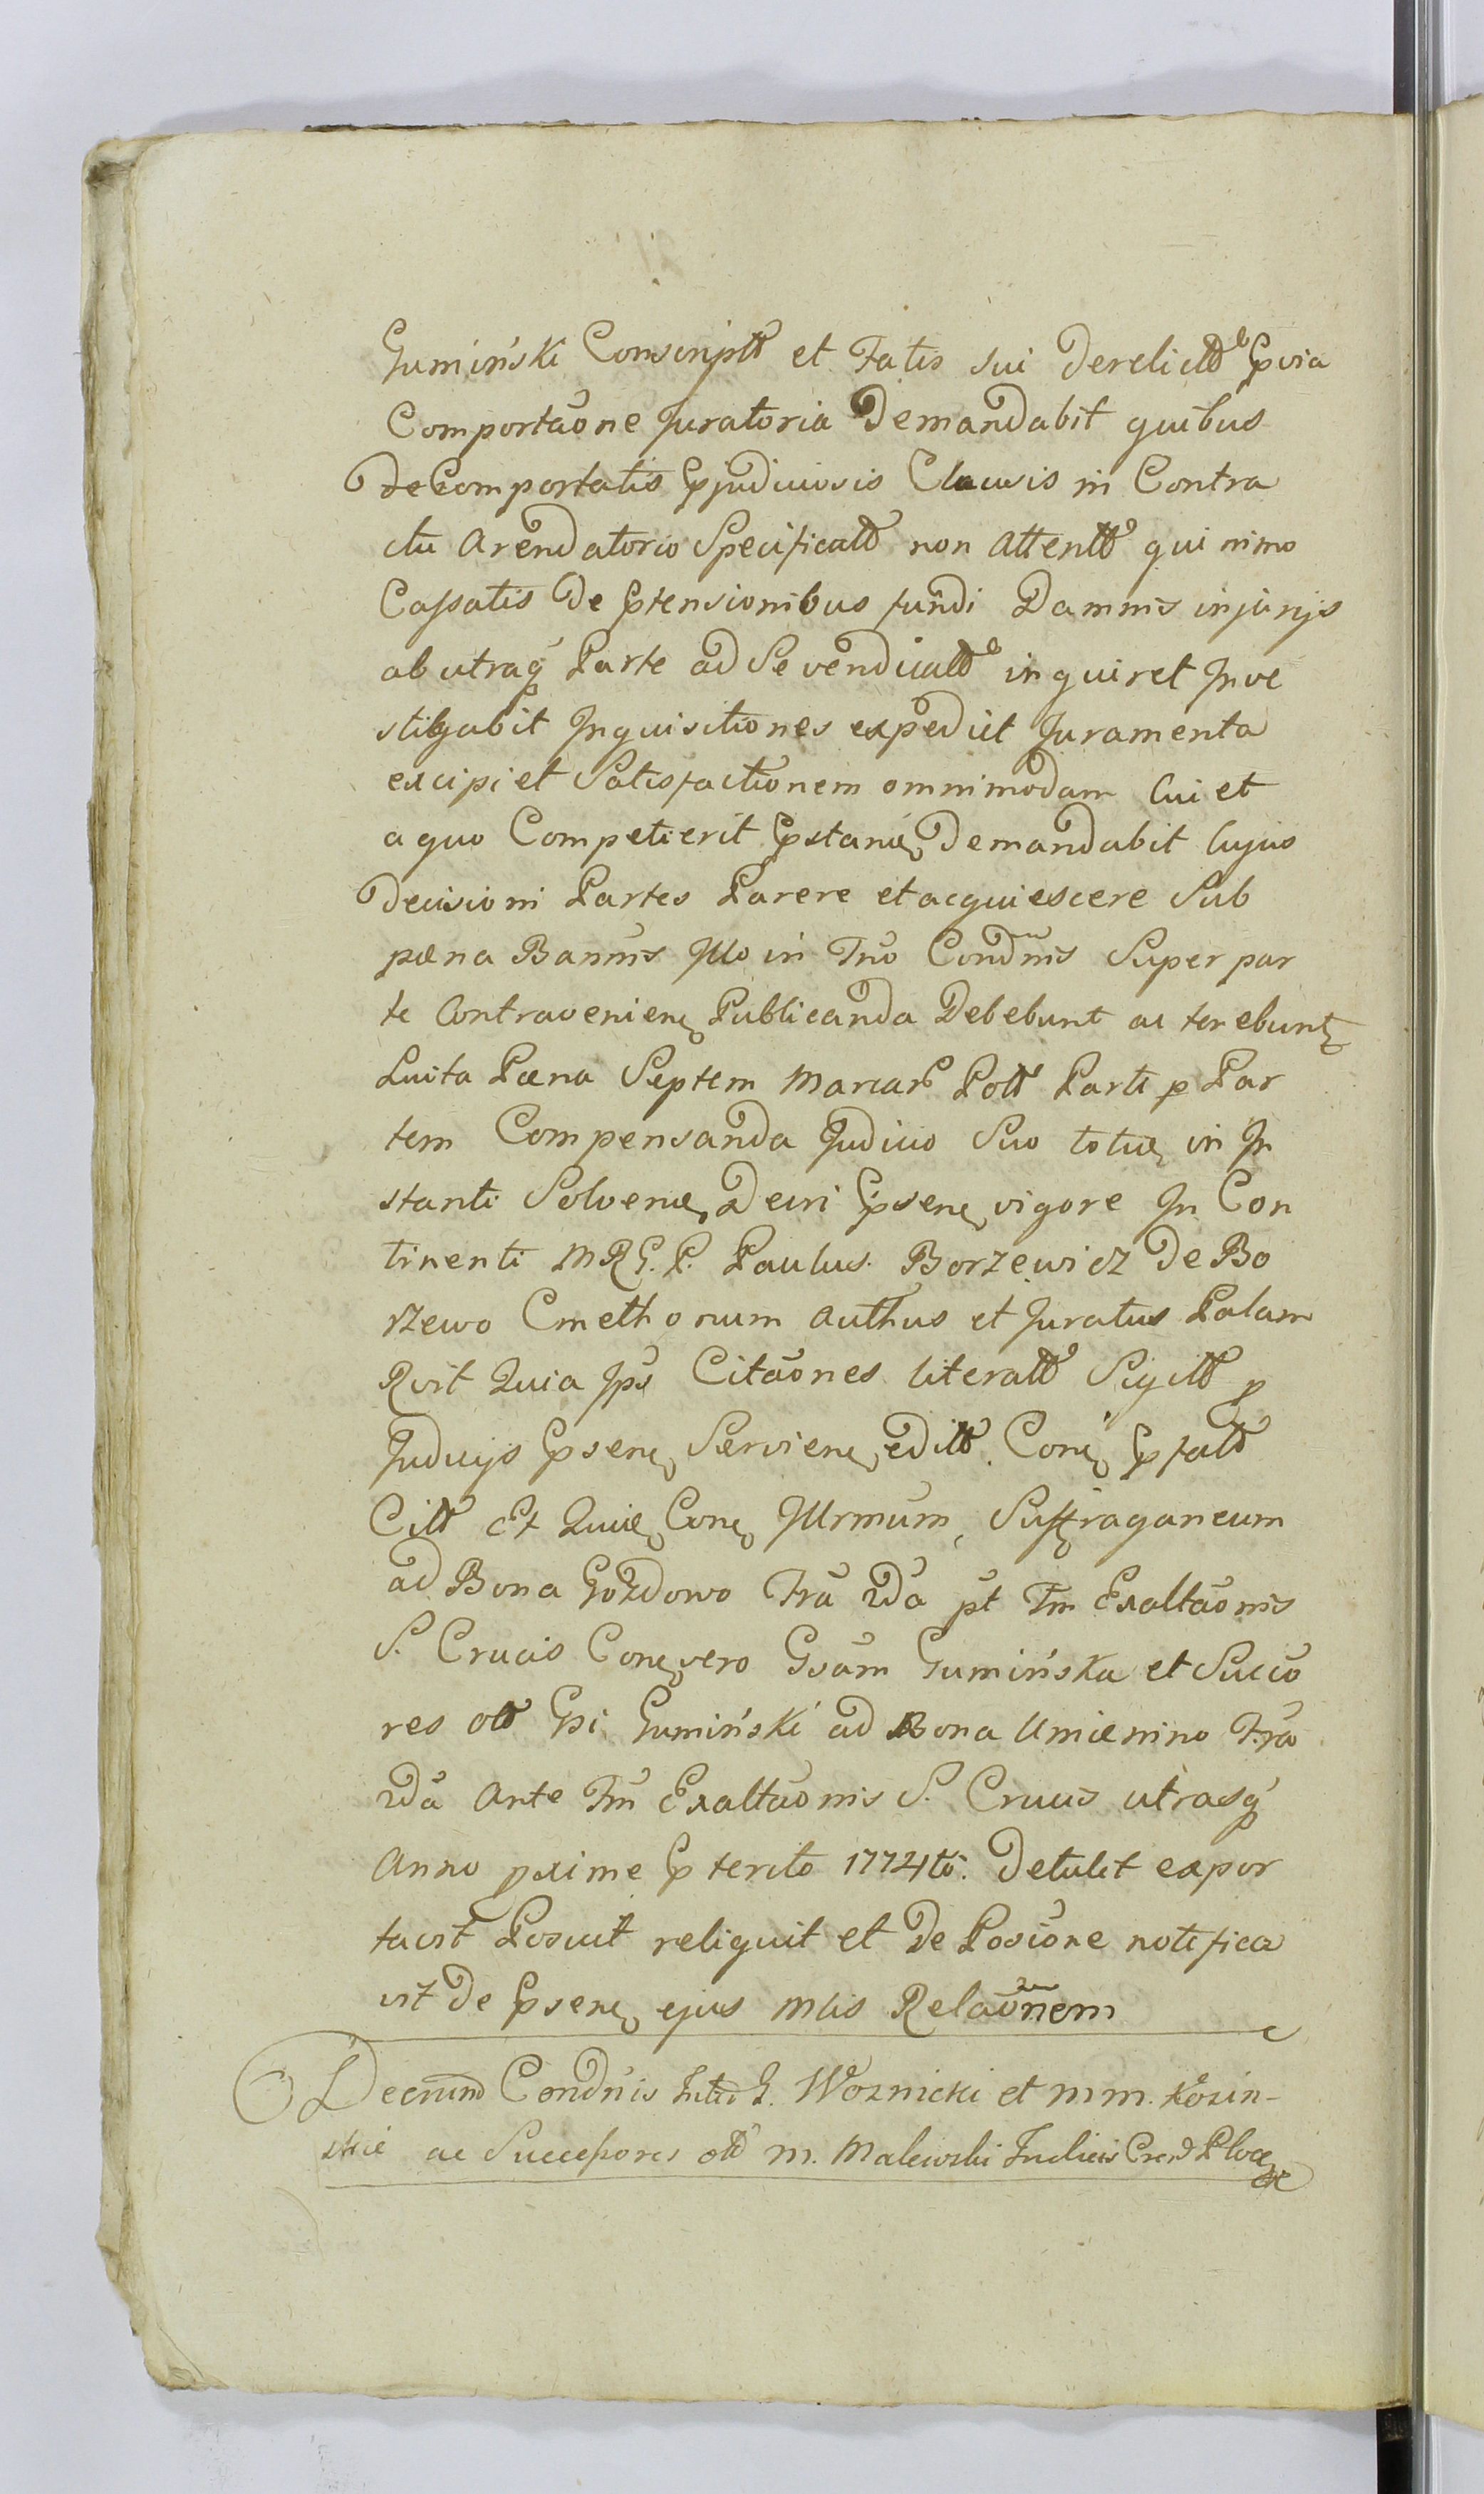 Gumiński Conscriptt et Fatis sui Derelictt pvia
Comportaōne Juratoria Demandabit quibus
De Comportatis pjudiciosis Clausis in Contra
ctu Arendatorio Specificatt non Attentt qui nimo
Cassatis De ptensionibus fundi Damnis injurijs
ab utraq Parte ad Se vendicatt inquiret Inve
stigabit Inquisitiones expediet Juramenta
excipiet Satisfactionem omnimodam Cui et
a quo Competierit pstanđ Demandabit Cujus
Decisioni Partes Parere et acquiescere Sub
pæna Bannis Illo in Tno Condnis Super par
te Contravenien Publicanda Debebunt ac tenebunt
Luita Pæna Septem Marcar Poll Parti p Par
tem Compensanda Judicio Suo toties in In
stanti Solven Decri psen vigore In Con
tinenti MRG. P. Paulus Borzewicz De Bo
rzewo Cmethonum Authus et Juratus Palam
Rvit Quia Ips Citaōnes literatt Sigill p
Judicijs psen Servien editt Con pfatt
Citt Et Quid Con Illrmum Suffraganeum
ad Bona Gozdowo Fra 2da pt Fm Exaltaōnis
S. Crucis Con vero Gsam Gumińska et Succo
res ott Gsi Gumiński ad Bona Umienino Fra
2da Ante Fm Exaltaōnis S. Crucis utrasq
Anno pxime pterito 1774to. Detulit expor
tavit Posuit reliquit et De Posiōne notifica
vit De psen ejus Mlis Relaōnem
Decrum Condnis Inter G. Woznicki et M M. Kozin-
skie ac Successores ott M. Malewski Judicis Cren Ploce